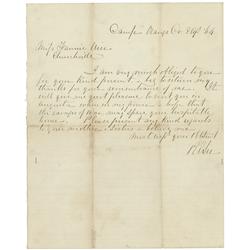 Camp Orange Co 8 Apl 64
Miss Fannie
Churchville
I am very much obliged to you
for your kind present & by to return my
thanks for your remembrance of me. It
will give me great pleasure to visit you in
Augusta when in my power & hope that
the ravages of war may spare your hospitable
home. Please present my kind regards
to your mother sisters & believe me
Most resp your obt servt
R E Lee